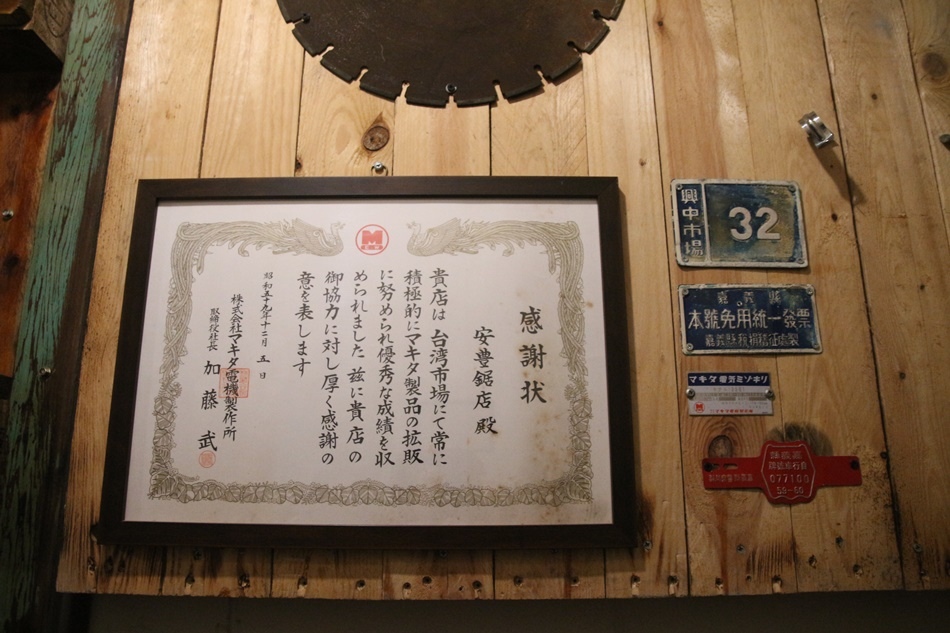 感謝状
安豊鋸店 殿
貴店は 台湾市場にて常に
積極的にマキタ製品の拡販
に努められ優秀な成績を収
められました 玆に貴店の
御協力に対し 厚く感謝の
意を表します
昭和五十九年十二月 五 日
株式会社マキタ電機製作所
取締役社長 加 藤 武
興中市場
32
嘉義縣
本號免用統一發票
マキタ電気ミゾキリ
077100
59-60